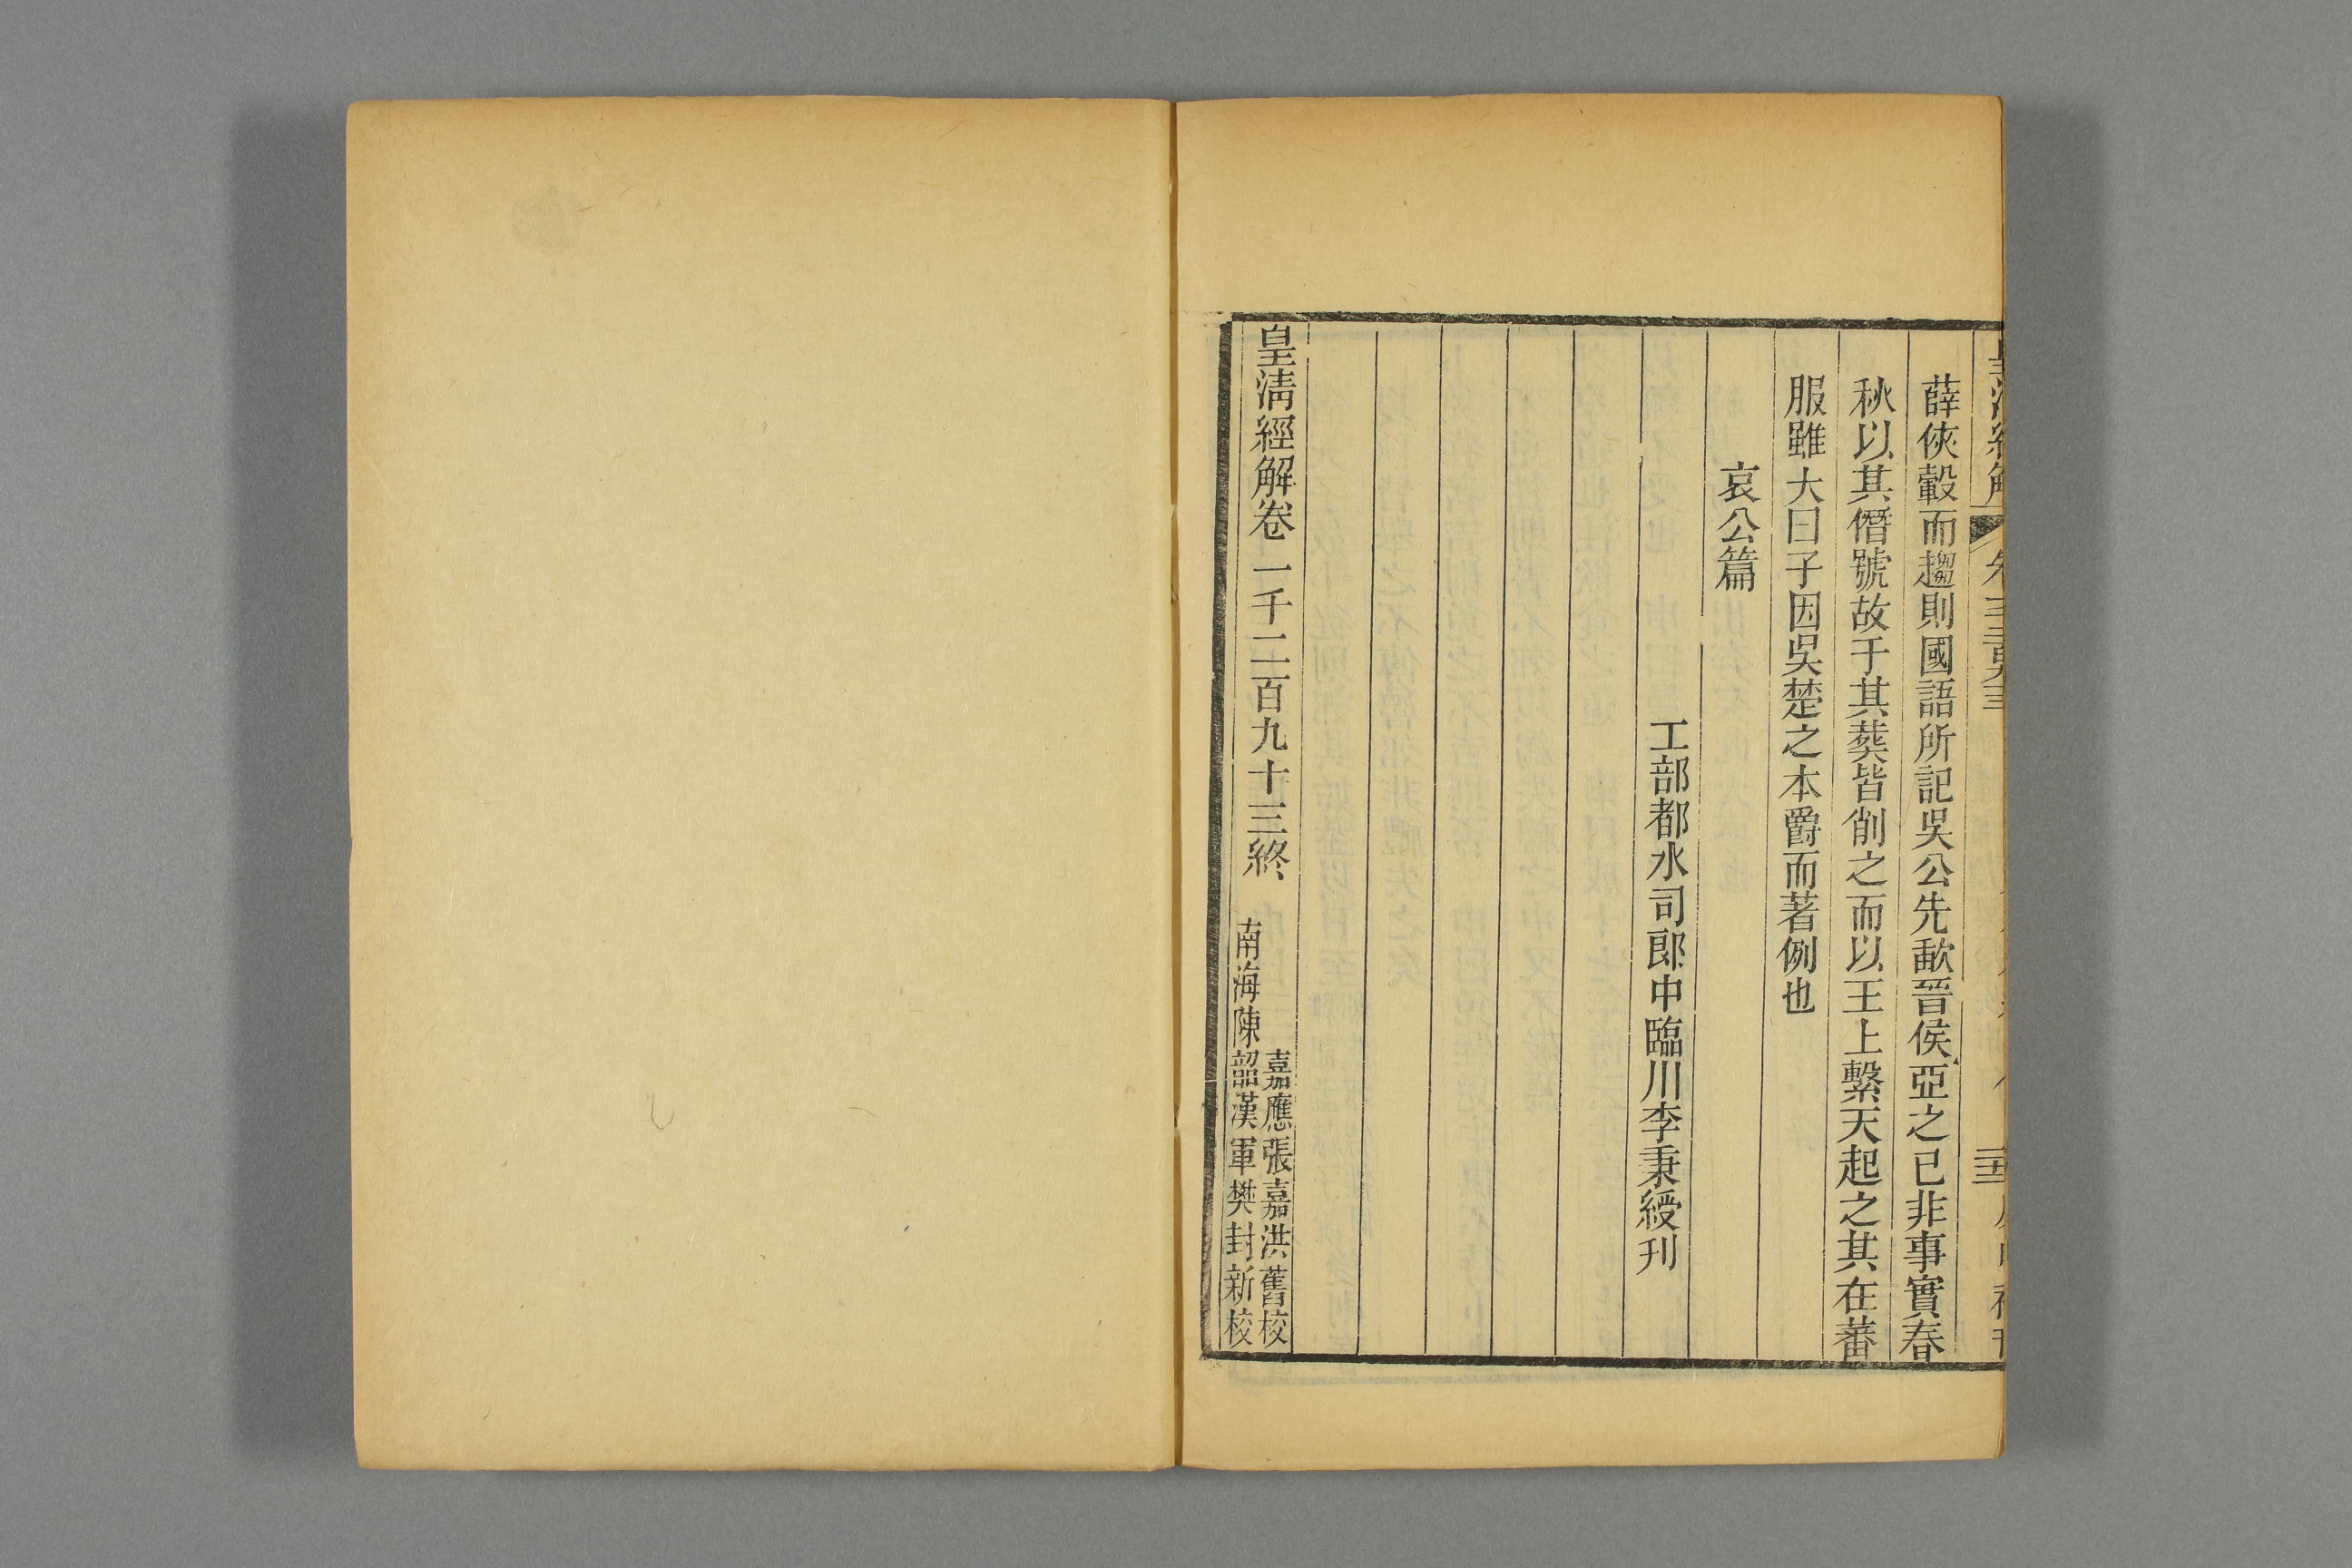 皇清經解
薛俠轂而趨則國語所記吳公先歃晉侯亞之已非事實春
秋以其僭號故于其葬皆削之而以王上繫天起之其在蕃
服雖大曰子因吳楚之本爵而著例也
哀公篇
工部都水司郎中臨川李秉綬刊
皇清經解卷一千二百九十三終
嘉應張嘉洪舊校
南海陳韶漢軍樊封新校